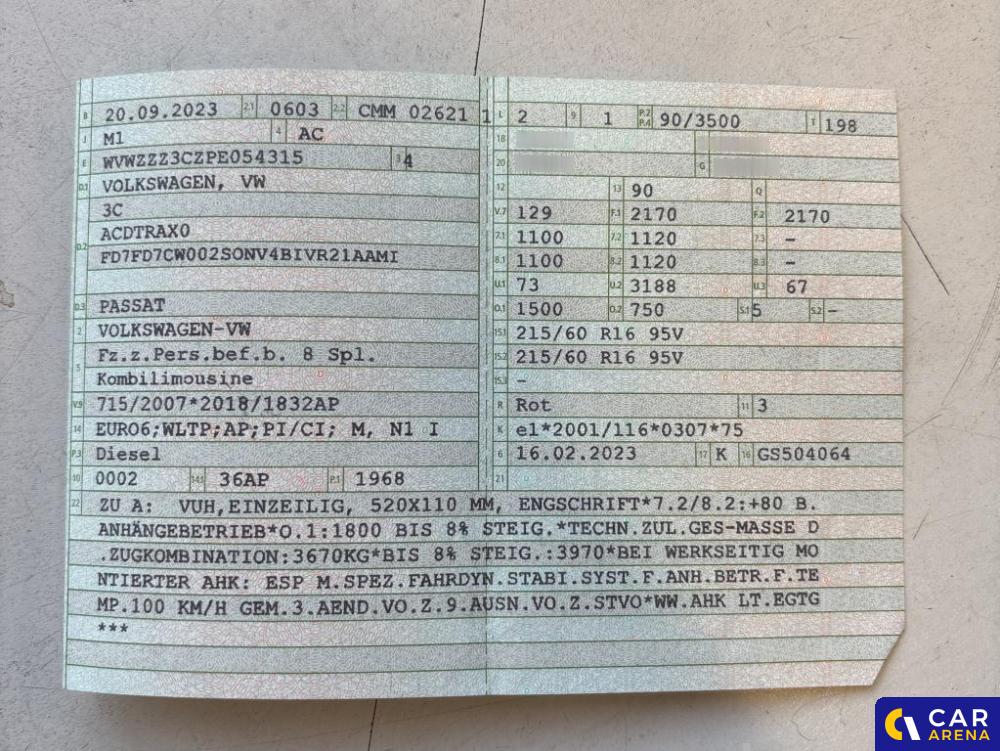 B 20.09.2023 2.1 0603 2.2 CMM 02621 1
J M1 4 AC
E WVWZZZ3CZPE054315 3 4
D.1 VOLKSWAGEN, VW
3C
D.2 ACDTRAX0
FD7FD7CW002SONV4BIVR21AAMI
D.3 PASSAT
2 VOLKSWAGEN-VW
5 Fz.z.Pers.bef.b. 8 Spl.
Kombilimousine
V.9 715/2007*2018/1832AP
14 EURO6;WLTP;AP;PI/CI; M, N1 I
P.3 Diesel
10 0002 14.1 36AP P.1 1968
L 2 9 1 P.2 P.4 90/3500 T 198
18
20 G
12 13 90 Q
V.7 129 F.1 2170 F.2 2170
7.1 1100 7.2 1120 7.3 -
8.1 1100 8.2 1120 8.3 -
U.1 73 U.2 3188 U.3 67
O.1 1500 O.2 750 S.1 5 S.2 -
15.1 215/60 R16 95V
15.2 215/60 R16 95V
15.3 -
R Rot 11 3
K e1*2001/116*0307*75
6 16.02.2023 17 K 16 GS504064
21
22 ZU A: VUH,EINZEILIG, 520X110 MM, ENGSCHRIFT*7.2/8.2:+80 B.
ANHÄNGEBETRIEB*O.1:1800 BIS 8% STEIG.*TECHN.ZUL.GES-MASSE D
.ZUGKOMBINATION:3670KG*BIS 8% STEIG.:3970*BEI WERKSEITIG MO
NTIERTER AHK: ESP M.SPEZ.FAHRDYN.STABI.SYST.F.ANH.BETR.F.TE
MP.100 KM/H GEM.3.AEND.VO.Z.9.AUSN.VO.Z.STVO*WW.AHK LT.EGTG
***
CAR
ARENA